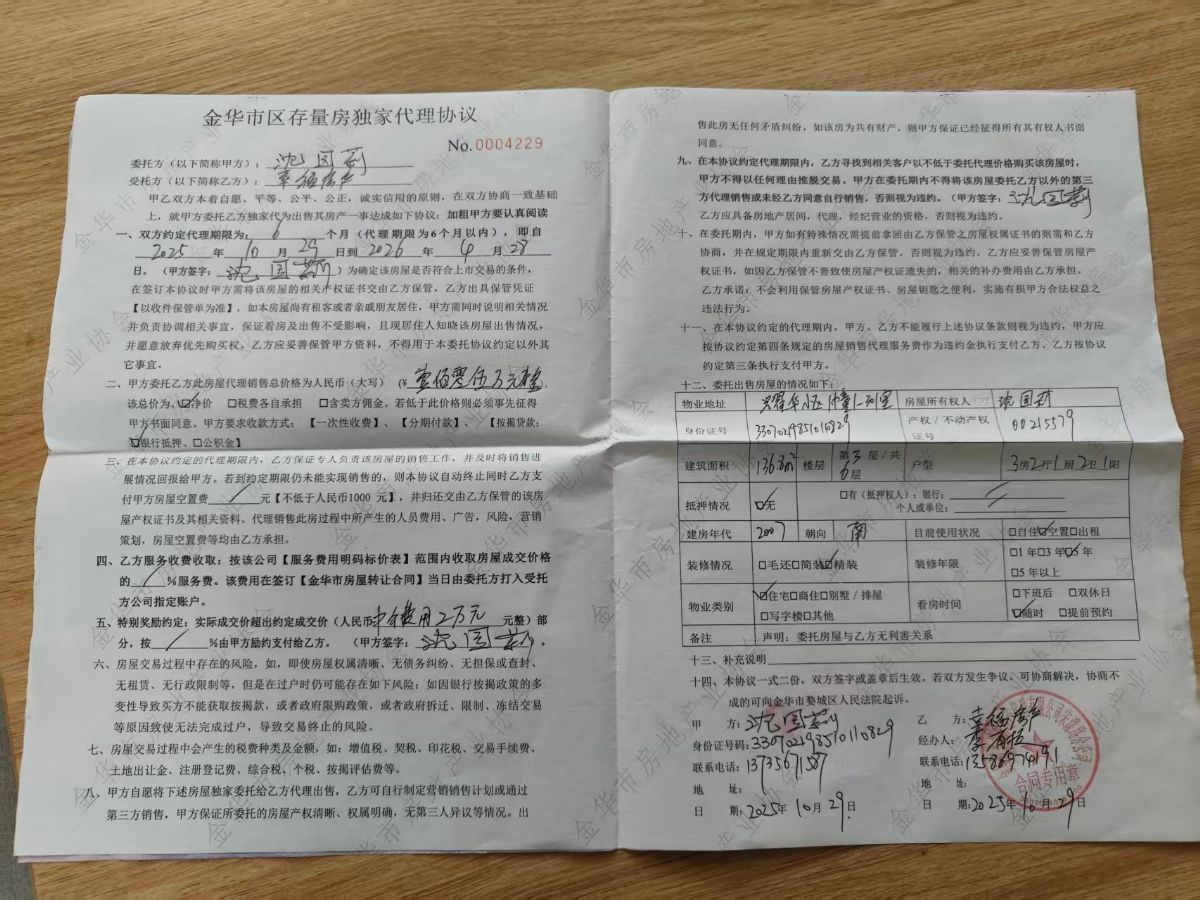 金华市区存量房独家代理协议
No.0004229
委托方（以下简称甲方）：沈国莉
受托方（以下简称乙方）：幸福房产
甲乙双方本着自愿、平等、公平、公正，诚实信用的原则，在双方协商一致基础
上，就甲方委托乙方独家代为出售其房产一事达成如下协议：加粗甲方要认真阅读
一、双方约定代理期限为：6个月（代理期限为6个月以内），即自
2025年10月29日到2026年4月28
日。（甲方签字：沈国莉）为确定该房屋是否符合上市交易的条件，
在签订本协议时甲方需将该房屋的相关产权证书交由乙方保管，乙方出具保管凭证
【以收件保管单为准】，如本房屋尚有租客或者亲戚朋友居住，甲方需同时说明相关情况
并负责协调相关事宜，保证看房及出售不受影响，且现居住人知晓该房屋出售情况，
并愿意放弃优先购买权。乙方应妥善保管甲方资料，不得用于本委托协议约定以外其
它事宜。
二、甲方委托乙方此房屋代理销售总价格为人民币（大写）（¥壹佰零伍万元整
该总价为：☑净价 □税费各自承担 □含卖方佣金。若低于此价格则必须事先征得
甲方书面同意。甲方要求收款方式：【一次性收费】、【分期付款】、【按揭贷款：
☑银行抵押、□公积金】
三、在本协议约定的代理期限内，乙方保证专人负责该房屋的销售工作，并及时将销售进
展情况回报给甲方。若到约定期限仍未能实现销售的，则本协议自动终止同时乙方支
付甲方房屋空置费 / 元【不低于人民币1000 元】，并归还交由乙方保管的该房
屋产权证书及其相关资料。代理销售此房过程中所产生的人员费用、广告，风险，营销
策划，房屋空置费等均由乙方承担。
四、乙方服务收费收取：按该公司【服务费用明码标价表】范围内收取房屋成交价格
的 / %服务费。该费用在签订【金华市房屋转让合同】当日由委托方打入受托
方公司指定账户。
五、特别奖励约定：实际成交价超出约定成交价（人民币中介费用2万元 元整）部
分，按 / %由甲方励约支付给乙方。（甲方签字：沈国莉。
六、房屋交易过程中存在的风险，如，即使房屋权属清晰、无债务纠纷、无担保或查封、
无租赁、无行政限制等，但是在过户时仍可能存在如下风险：如因银行按揭政策的多
变性导致买方不能获取按揭款，或者政府限购政策，或者政府拆迁、限制、冻结交易
等原因致使无法完成过户，导致交易终止的风险。
七、房屋交易过程中会产生的税费种类及金额，如：增值税、契税、印花税、交易手续费、
土地出让金、注册登记费、综合税、个税、按揭评估费等。
八、甲方自愿将下述房屋独家委托给乙方代理出售，乙方可自行制定营销销售计划或通过
第三方销售，甲方保证所委托的房屋产权清晰、权属明确，无第三人异议等情况。出
售此房无任何矛盾纠纷，如该房为共有财产，则甲方保证已经征得所有其有权人书面
同意。
九、在本协议约定代理期限内，乙方寻找到相关客户以不低于委托代理价格购买该房屋时，
甲方不得以任何理由推脱交易。甲方在委托期内不得将该房屋委托乙方以外的第三
方代理销售或未经乙方同意自行销售，否则视为违约。（甲方签字：沈国莉
乙方应具备房地产居间，代理，经纪营业的资格，否则视为违约。
十、在委托期内，甲方如有特殊情况需提前拿回由乙方保管之房屋权属证书的则需和乙方
协商，并在规定期限内重新交由乙方保管，否则视为违约。乙方应妥善保管房屋产
权证书，如因乙方保管不善致使房屋产权证遗失的，相关的补办费用由乙方承担。
乙方承诺：不会利用保管房屋产权证书、房屋钥匙之便利，实施有损甲方合法权益之
违法行为。
十一、在本协议约定的代理期内，甲方、乙方不能履行上述协议条款则视为违约，甲方应
按协议约定第四条规定的房屋销售代理服务费作为违约金执行支付乙方。乙方按协议
约定第三条执行支付甲方。
十二、委托出售房屋的情况如下：
物业地址 房屋所有权人 沈国莉
身份证号 产权/不动产权证号 00215579
建筑面积 136.8m² 楼层 第3层/共6层 户型 3房2厅1厨2卫1阳
抵押情况 ☑无 □有（抵押权人）：银行：
个人或单位：
建房年代 2007 朝向 南 目前使用状况 □自住☑空置□出租
装修情况 □毛还□简装☑精装 装修年限 □1年□3年☑5年
□5年以上
物业类别 ☑住宅□商住□别墅/排屋
□写字楼□其他
看房时间 □下班后 □双休日
☑随时 □提前预约
备注 声明：委托房屋与乙方无利害关系
十三、补充说明
十四、本协议一式二份，双方签字或盖章后生效，若双方发生争议，可协商解决，协商不
成的可向金华市婺城区人民法院起诉。
甲 方：沈国莉 乙 方：幸福房产
身份证号码：330702198510110829 经办人：
联系电话：13735671587 联系电话：13586974191
地 址： 地 址：
日 期：2025年10月29日 日 期：2025年10月29日
合同专用章